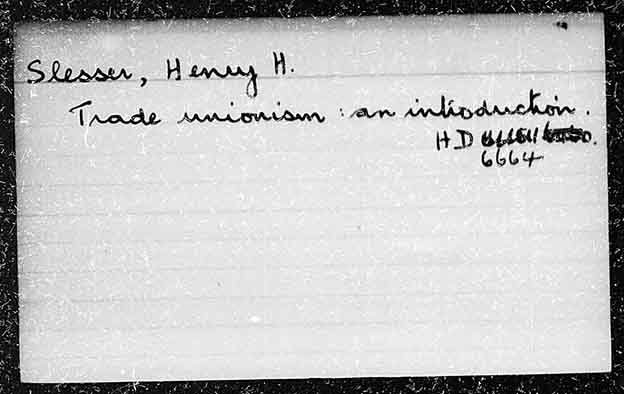 Slesser, Henry H.
Trade unionism : an introduction.
HD
6664